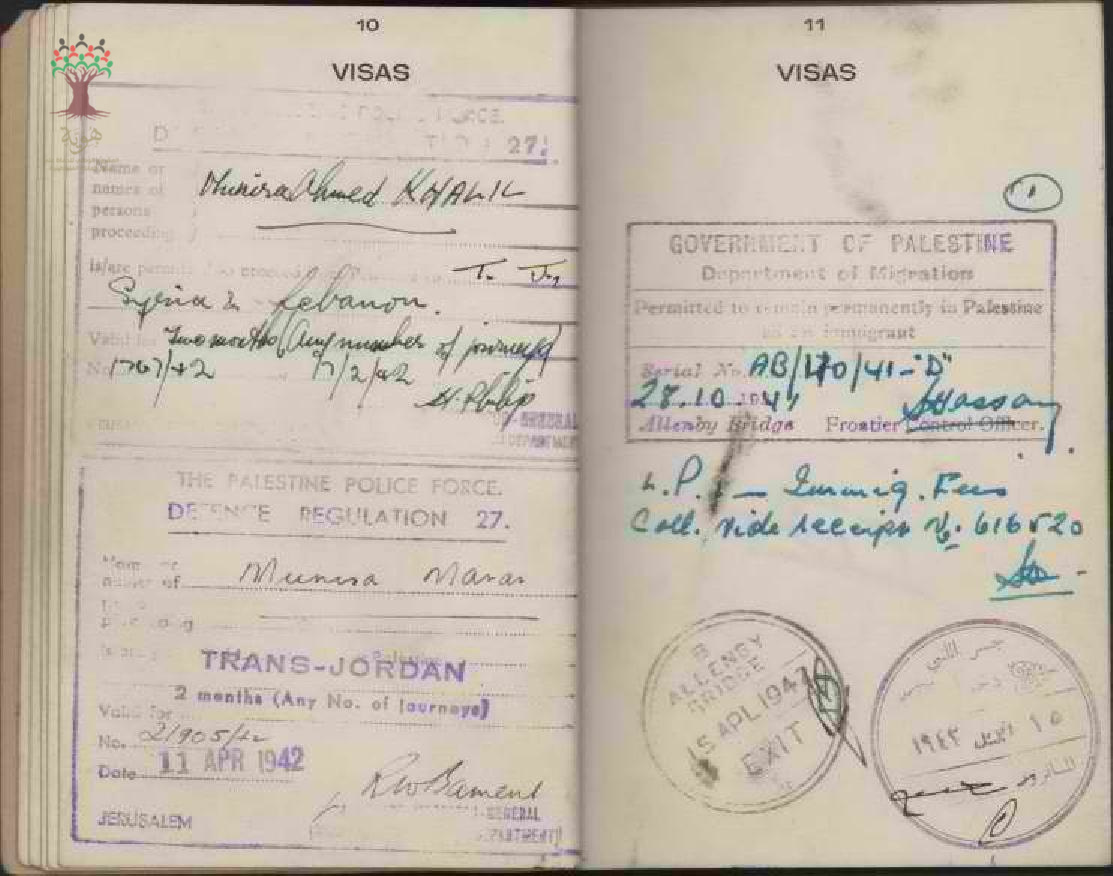 10
VISAS
هوية
27.
Name or
names of
persons
proceeding
Munira Ahmed KHALIL
is/are permitted to proceed from T. J.,
Syria & Lebanon.
Valid for Two months (Any number of journeys)
No. 1767/42 9/2/42
H. Philip
GENERAL
DEPARTMENT
THE PALESTINE POLICE FORCE.
DEFENCE REGULATION 27.
Munira
TRANS-JORDAN
2 months (Any No. of journeys)
Valid for
No. 21905/42
Date 11 APR 1942
JERUSALEM
GENERAL
DEPARTMENT
11
VISAS
1
GOVERNMENT OF PALESTINE
Department of Migration
Permitted to remain permanently in Palestine
as an immigrant
Serial No. AB/170/41-"D"
28.10.1941
Allenby Bridge Frontier Control Officer.
SHassan
L.P. 1 — Immig. Fees
Coll. vide receipt No. 616520
B
ALLENBY
BRIDGE
15 APL 1942
EXIT
جسر اللنبي
١٥ ١٩٤٢